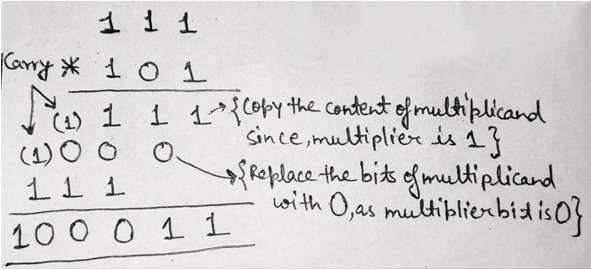 1 1 1
Carry * 1 0 1
(1) 1 1 1 → {Copy the content of multiplicand
since, multiplier is 1}
(1) 0 0 0
{Replace the bits of multiplicand
1 1 1
with 0, as multiplier bit is 0}
1 0 0 0 1 1